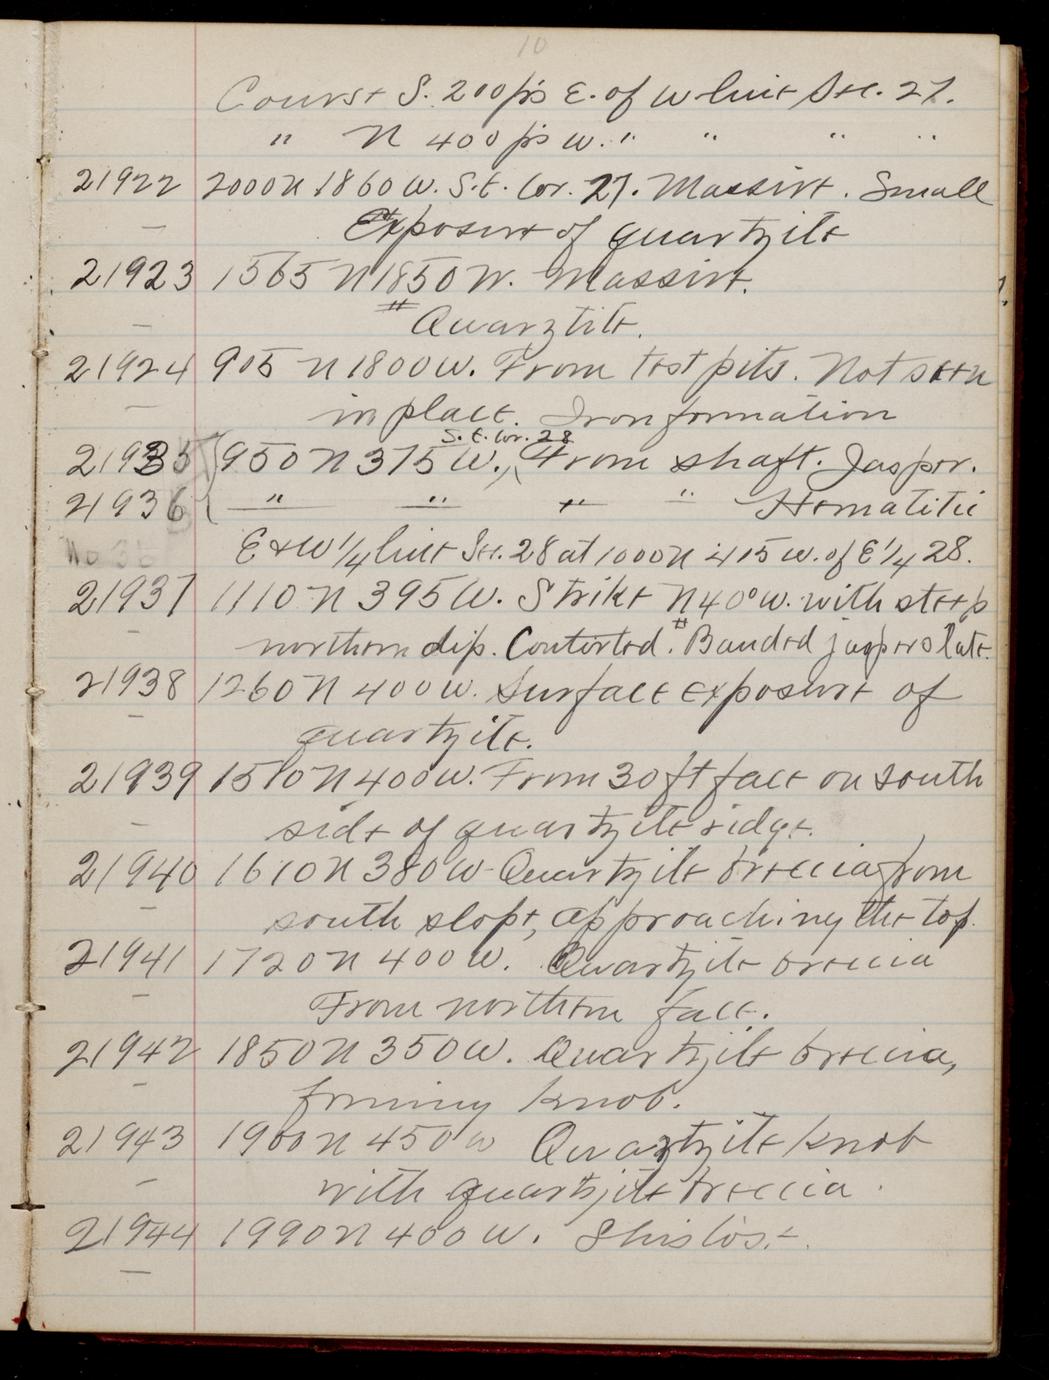 10
Course S. 200 ps E. of W line Sec. 27.
" N 400 ps W. " " " "
21922 2000 N 1860 W. S.E. Cor. 27. Massive. Small
Exposure of quartzite
21923 1565 N 1850 W. Massive.
Quarztite.
21924 905 N 1800 W. From test pits. Not seen
in place. Iron formation
S.E. Cor. 28
21935 950 N 375 W., From shaft. Jasper.
21936 " " " " Hematitic
No 35 E & W 1/4 line Sec. 28 at 1000 N 415 W. of E 1/4 28.
21937 1110 N 395 W. Strike N 40° W. with steep
northern dip. Contorted. Banded jasper slate.
21938 1260 N 400 W. Surface exposure of
quartzite.
21939 1510 N 400 W. From 30 ft face on south
side of quartzite ridge.
21940 1610 N 380 W. Quartzite breccia from
south slope, approaching the top.
21941 1720 N 400 W. Quartzite breccia
From northern face.
21942 1850 N 350 W. Quartzite breccia,
forming knob.
21943 1900 N 450 W Quartzite knob
with quartzite breccia.
21944 1990 N 400 W.